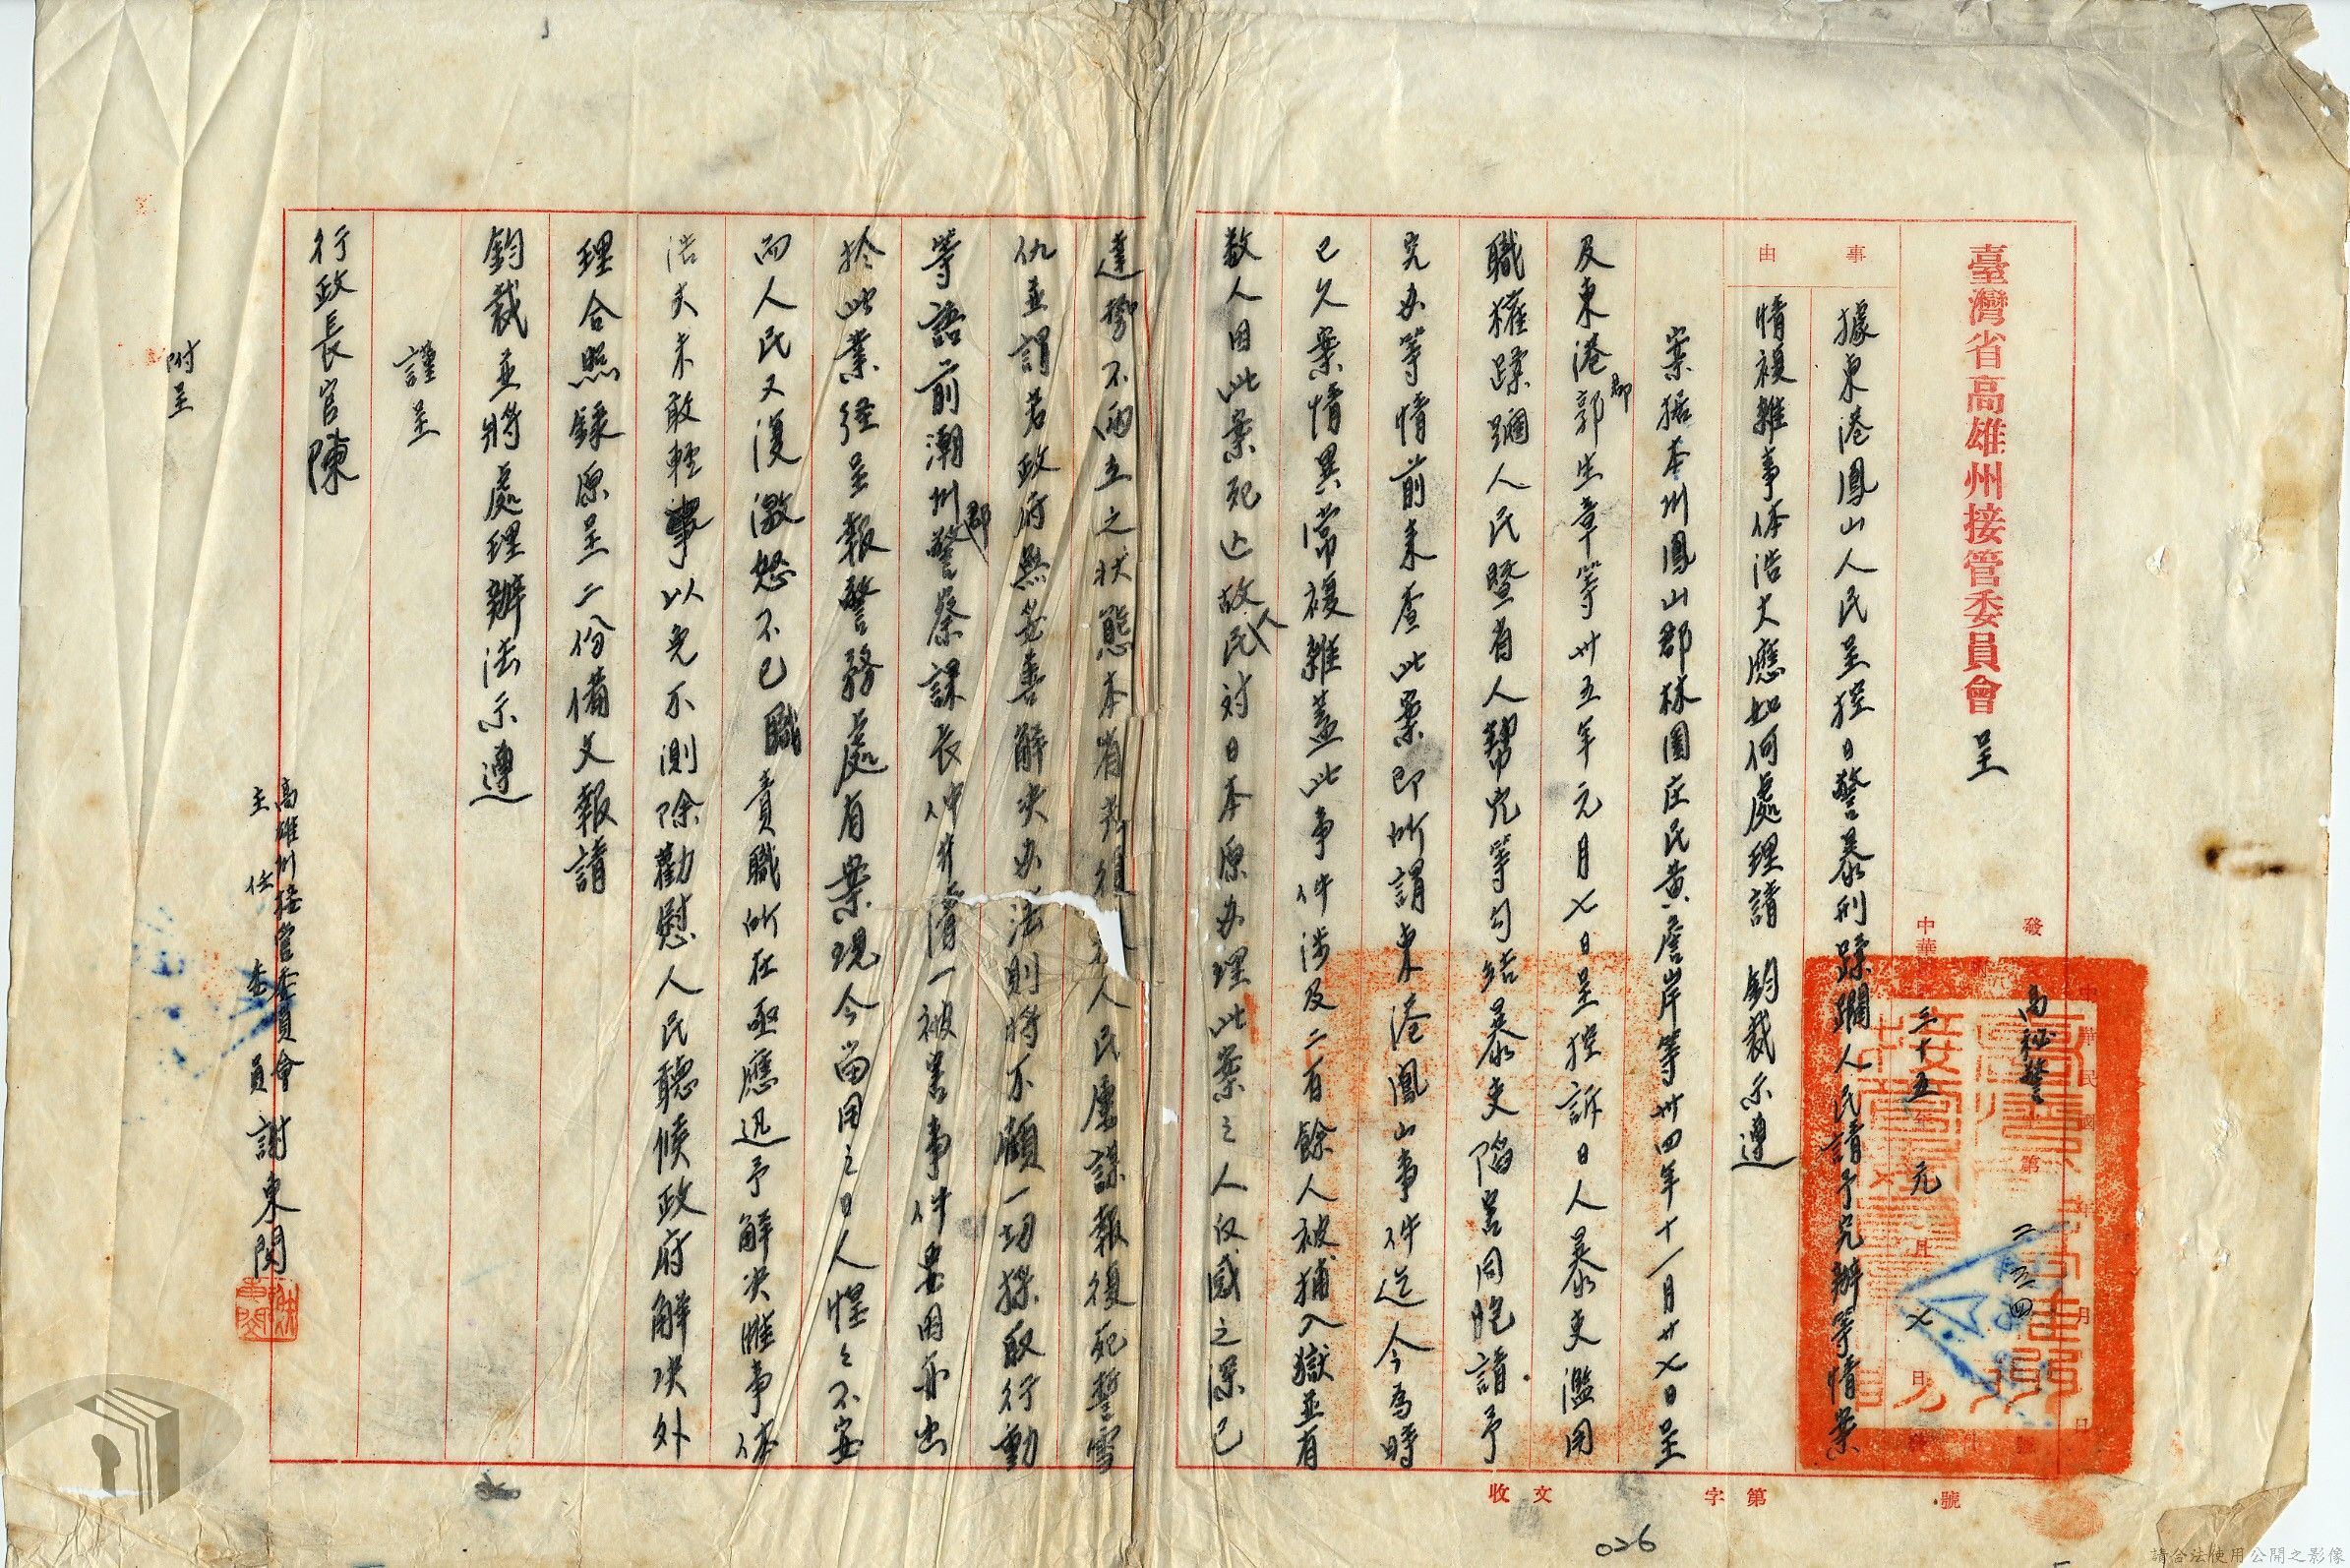 臺灣省高雄州接管委員會 呈
發
高秘警
第 二三四
中華 三十五年 元月 七日
事由
據東港鳳山人民呈控日警暴刑蹂躪人民請予究辦等情案
情複雜事体浩大應如何處理請 鈞裁示遵
案据本州鳳山郡林園庄民黄詹岸等卅四年十一月廿七日呈
及東港郡郭生章等卅五年元月七日呈控訴日人暴吏濫用
職權蹂躪人民暨省人幫兇等勾結暴吏陷害同胞請予
究办等情前来查此案即所謂東港鳳山事件迄今為時
已久案情異常複雜蓋此事件涉及二百餘人被捕入獄並有
数人因此案死亡故人民对日本原办理此案之人仅感之深已
達勢不兩立之状態本省 人民屢謀報復死誓雪
仇並謂若政府無妥善解決办法則將不顧一切採取行動
等語前潮州郡警察課長仲井清一被害事件要因亦出
於此業经呈報警務處有案現今留用之日人惶之不安
而人民又復激怒不已職責職所在亟應迅予解决惟事体
浩大未敢輕事以免不測除勸慰人民聽候政府解决外
理合照錄原呈二份備文報請
鈞裁並將處理辦法示遵
謹呈
行政長官陳
附呈
高雄州接管委員會
主任委員 謝東閔
收文 字第 號
026
請合法使用公開之影像